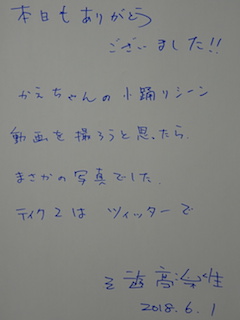 本日もありがとう
ございました!!
かえちゃんの小踊りシーン
動画を撮ろうと思ったら、
まさかの写真でした
テイク2は ツイッターで
2018.6.1